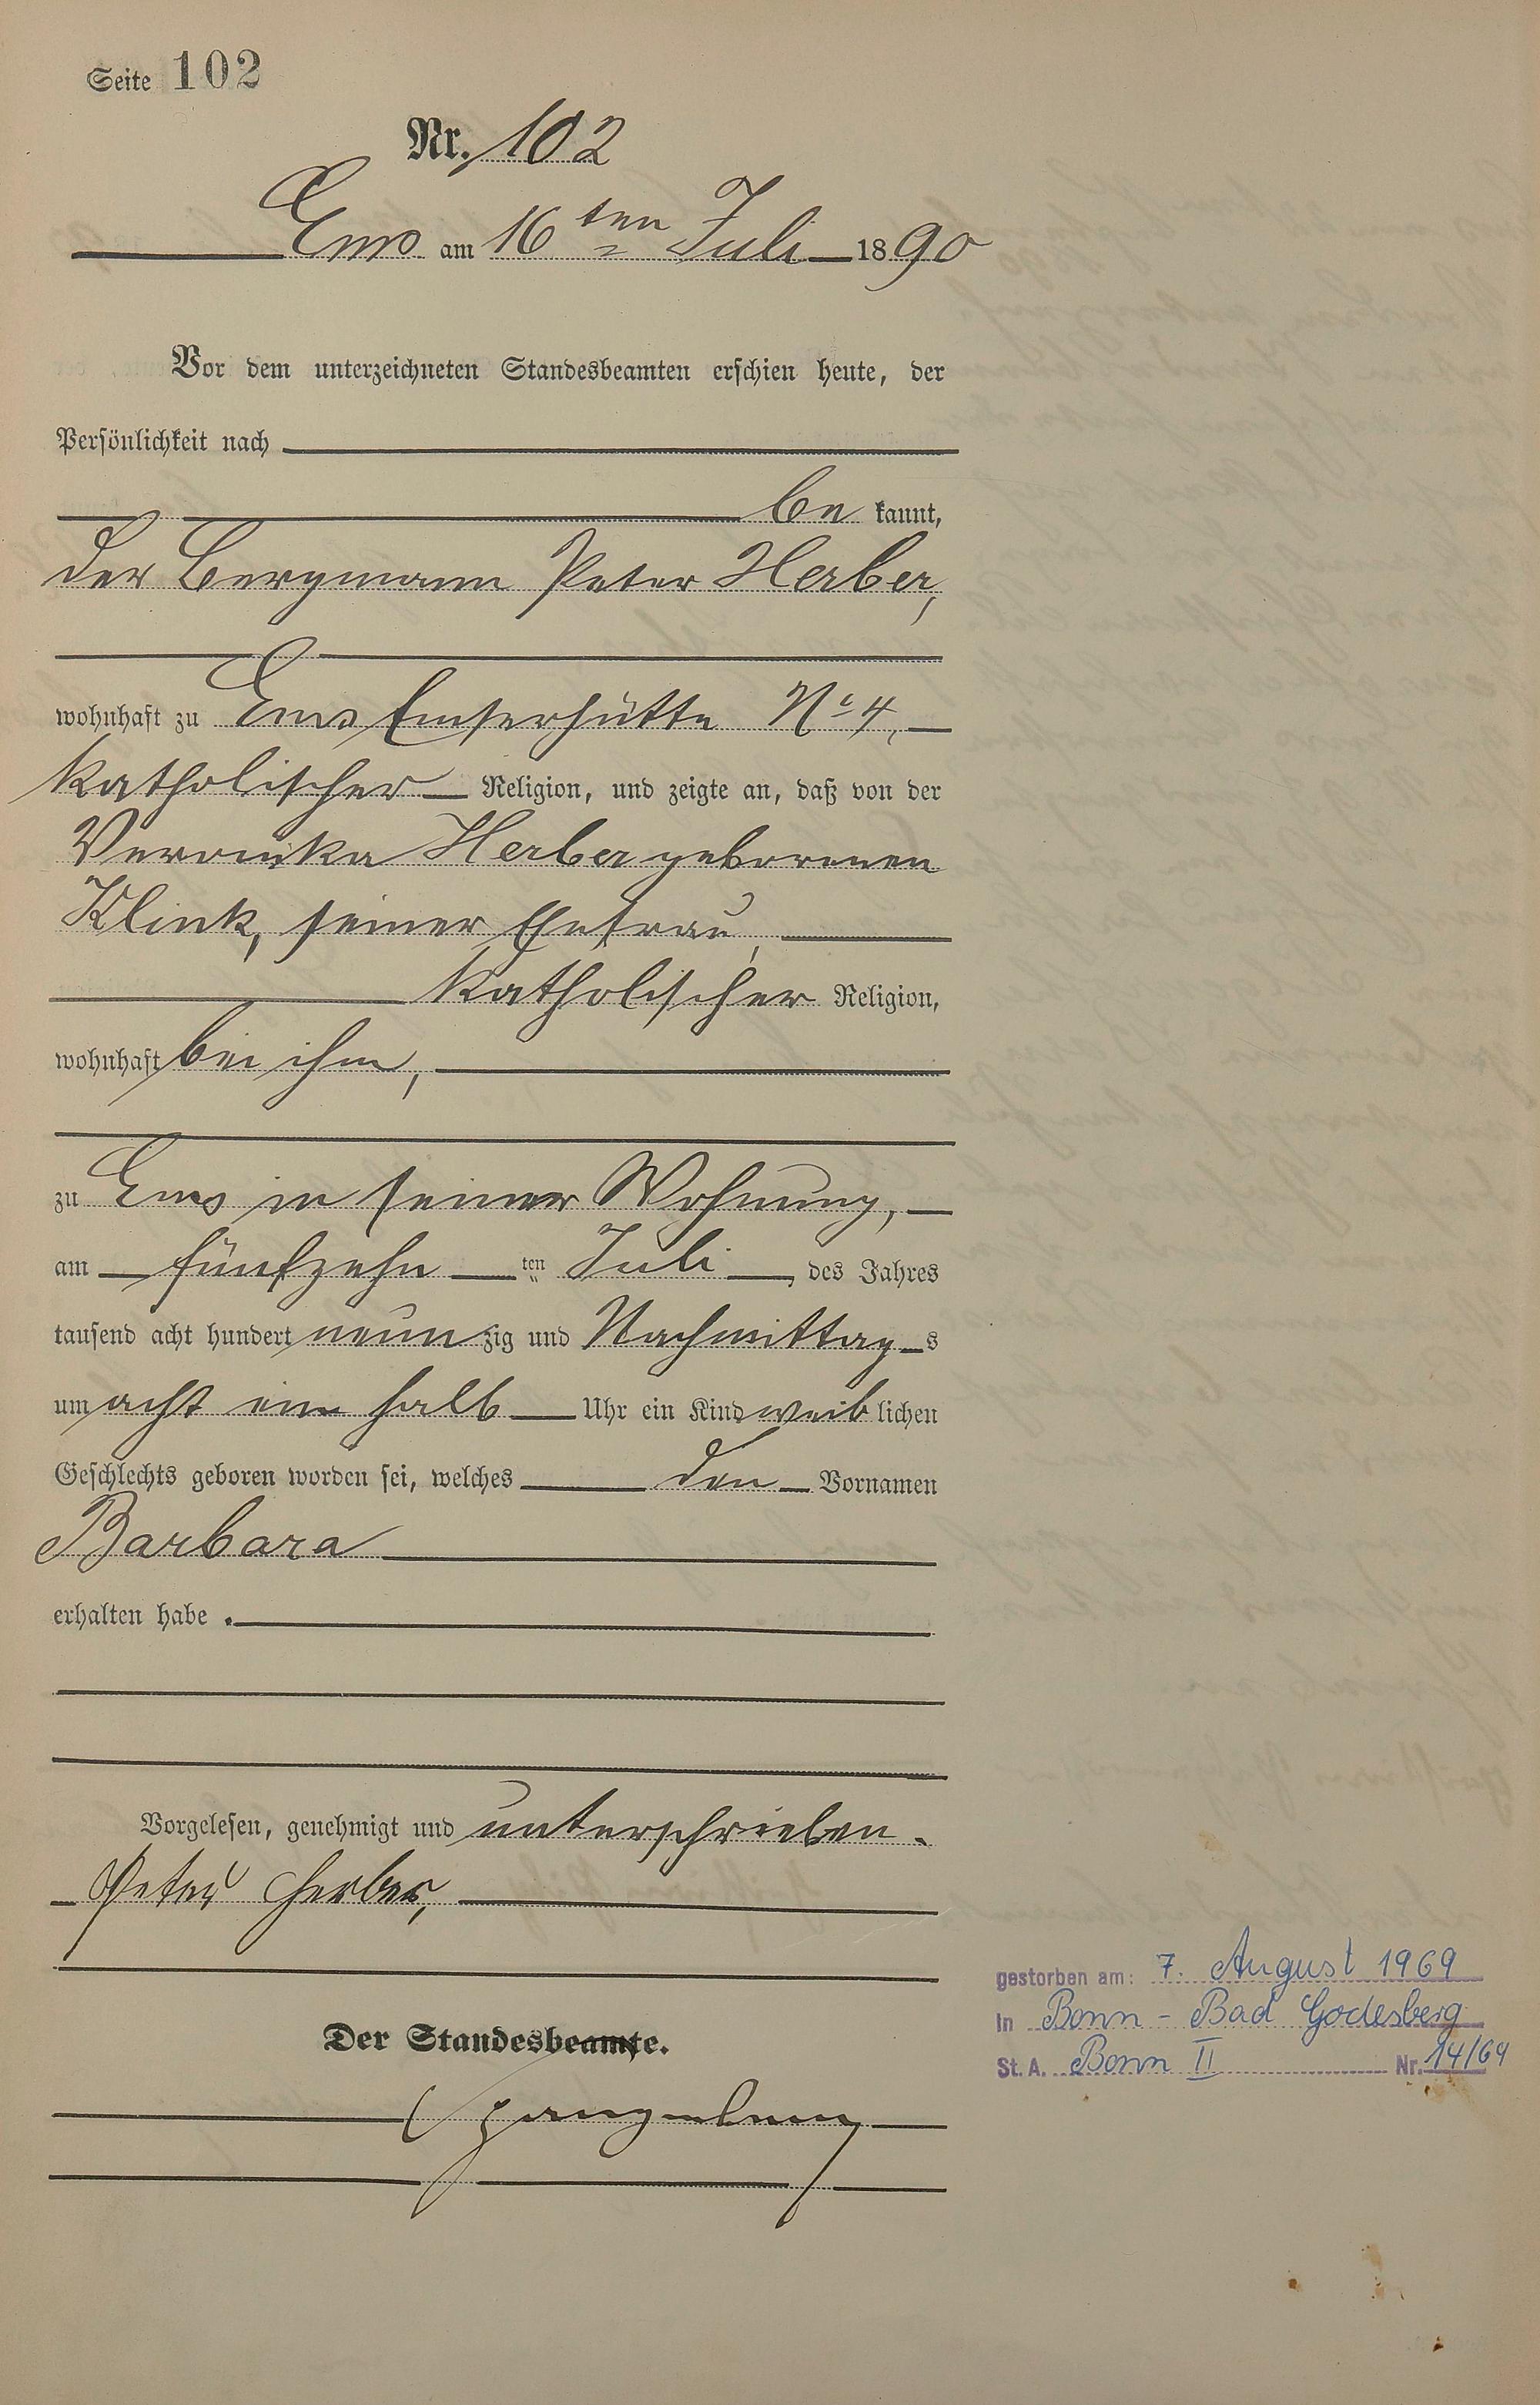 Seite 102
Nr. 102
Ems am 16ten Juli 1890
Vor dem unterzeichneten Standesbeamten erschien heute, der
Persönlichkeit nach
be kannt,
der Bergmann Peter Herber,
wohnhaft zu Ems Emserhütte No 4,
katholischer Religion, und zeigte an, daß von der
Veronika Herber geborenen
Klink, seiner Ehefrau,
katholischer Religion,
wohnhaft bei ihm,
zu Ems in seiner Wohnung,
am fünfzehn ten Juli, des Jahres
tausend acht hundert neun zig und Nachmittag s
um acht ein halb Uhr ein Kind weib lichen
Geschlechts geboren worden sei, welches den Vornamen
Barbara
erhalten habe.
Vorgelesen, genehmigt und unterschrieben.
Peter Herber,
Der Standesbeamte.
Spangenberg
gestorben am: 7. August 1969
in Bonn - Bad Godesberg
St. A. Bonn II Nr. 14/69